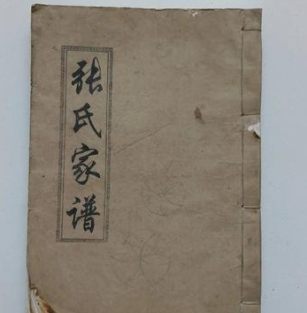 张氏家谱